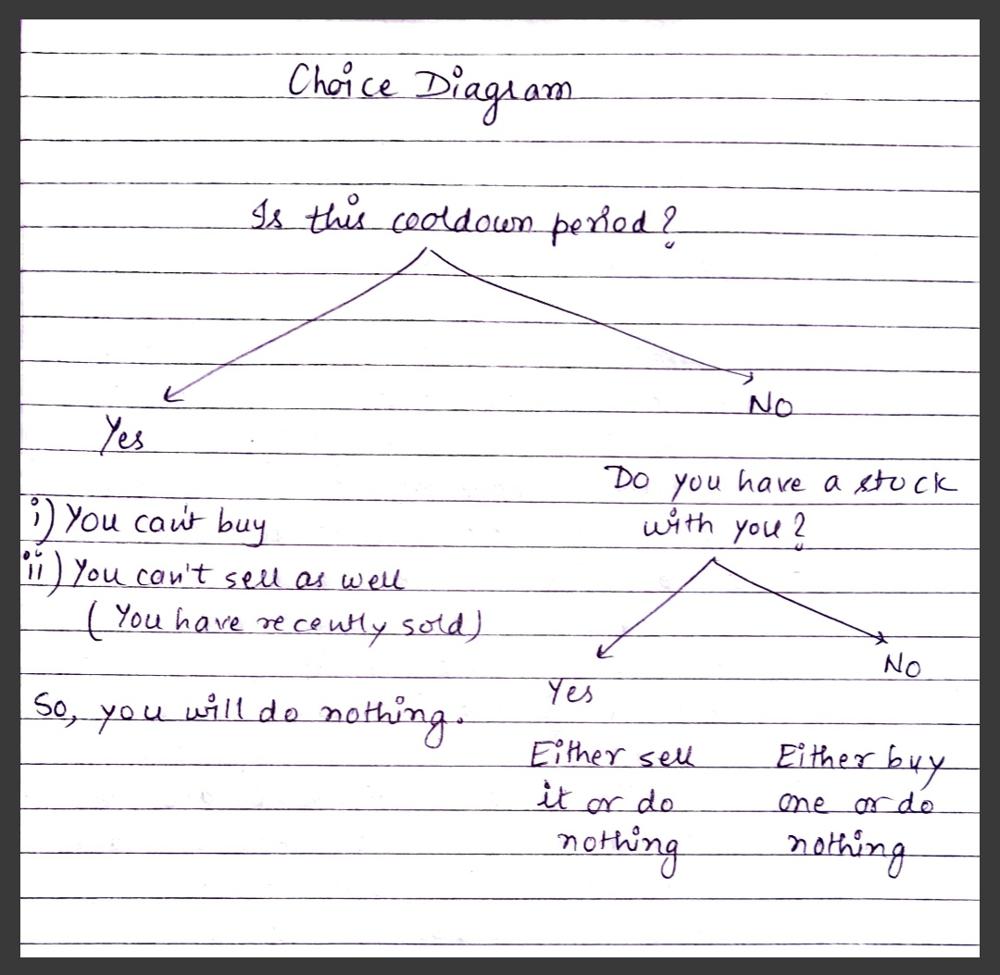 Choice Diagram
Is this cooldown period?
Yes
No
i) You can't buy
ii) You can't sell as well
(You have recently sold)
So, you will do nothing.
Do you have a stock
with you?
Yes
No
Either sell
it or do
nothing
Either buy
one or do
nothing